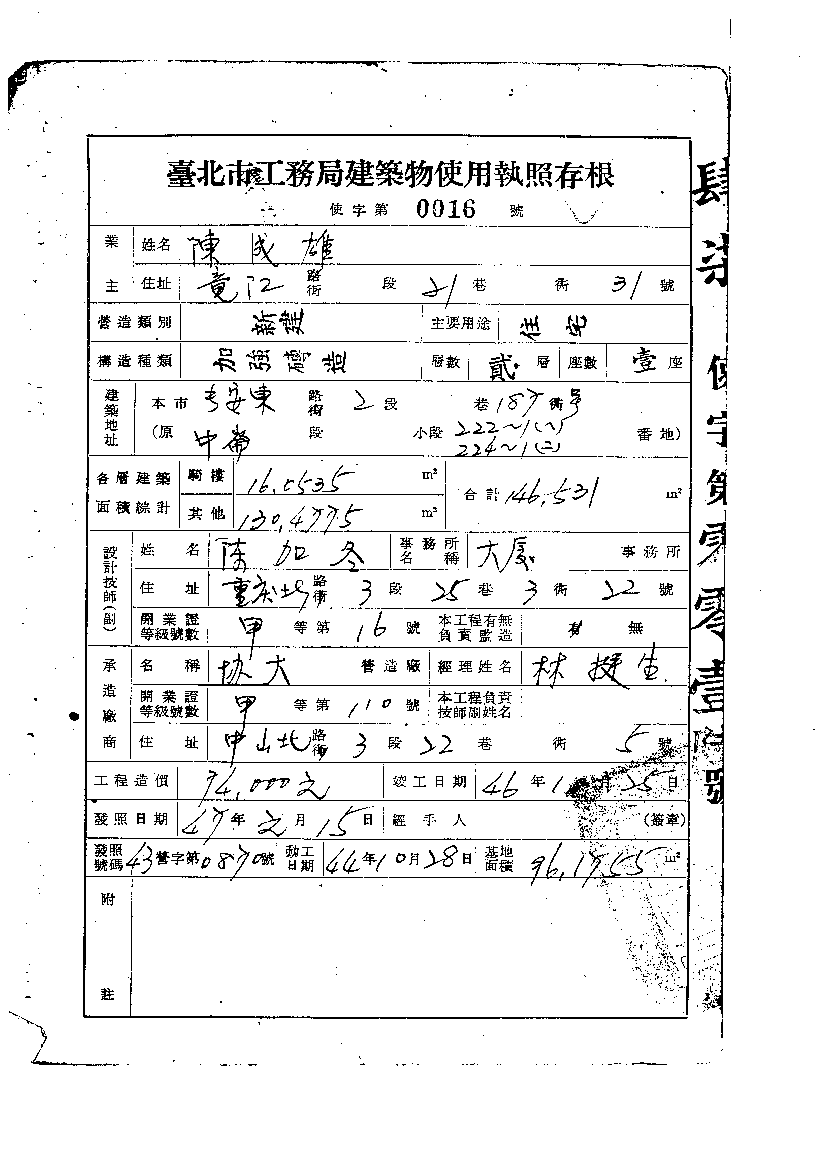 臺北市工務局建築物使用執照存根
使字第 0016 號
業主 姓名 陳成雄
住址 龍江 路街 段 21 巷 衖 31 號
營造類別 新建 主要用途 住宅
構造種類 加強磚造 層數 貳 層 座數 壹 座
建築地址 本市 長安東 路街 2 段 巷 187 衖号
(原 中崙 段 小段 222~1(八) 224~1(二) 番地)
各層建築面積綜計 騎樓 16.0535 m² 合計 146.531 m²
其他 130.4775 m²
設計技師(副) 姓名 陳加冬 事務所名稱 大厦 事務所
住址 重慶北 路街 3 段 25 巷 3 衖 22 號
開業證等級號數 甲 等第 16 號 本工程有無負責監造 有 無
承造廠商 名稱 協大 營造廠 經理姓名 林挺生
開業證等級號數 甲 等第 110 號 本工程負責技師副姓名
住址 中山北 路街 3 段 22 巷 衖 5 號
工程造價 94,000元 竣工日期 46 年 1 月 25 日
發照日期 47 年 元 月 15 日 經手人 (簽章)
發照號碼 43 營字第 0870 號 動工日期 44 年 10 月 28 日 基地面積 96.1755 m²
附註
肆柒 使字第零零壹陸號